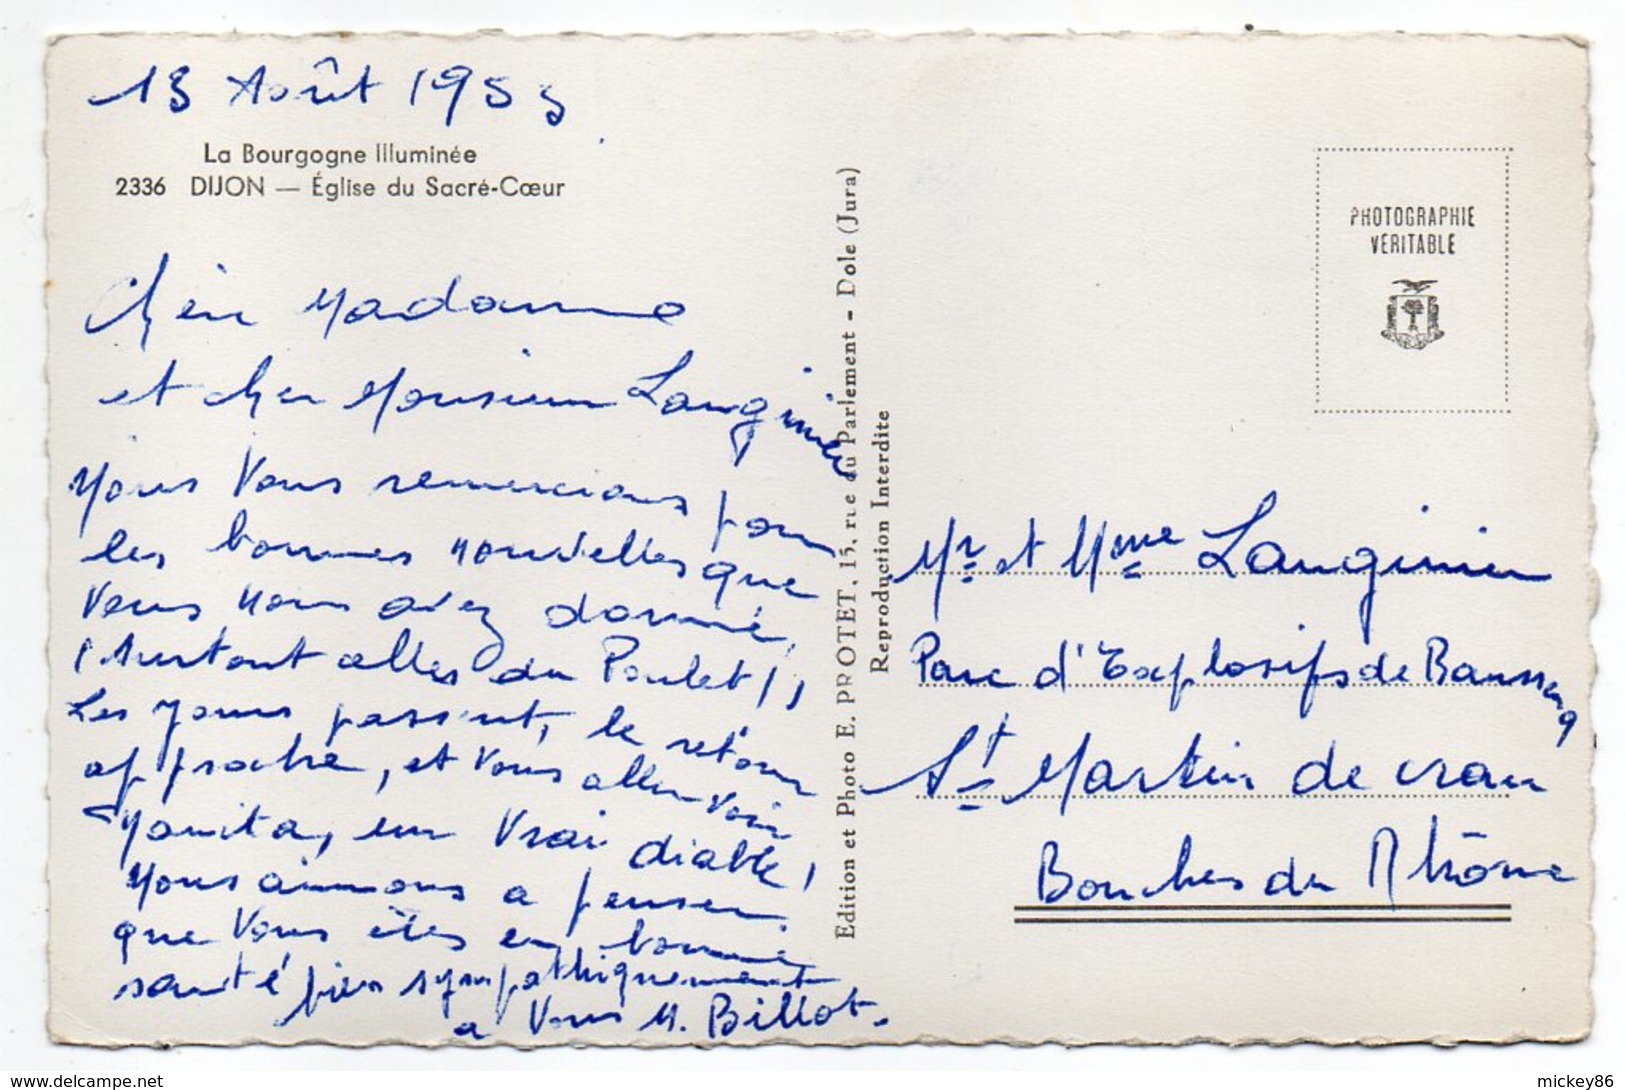 13 Août 1953
La Bourgogne Illuminée
2336 DIJON — Église du Sacré-Cœur
Chère Madame
et cher Monsieur Lauginier
Nous Vous remercions pour
les bonnes nouvelles que
Vous nous avez donné,
(surtout celles du Poulet),
Les Jours passent, le retour
approche, et Vous allez voir
un Vrai diable!
Nous aimons a penser
que Vous êtes en bonne
santé bien sympathiquement
a Vous M. Billot.
Edition et Photo E. PROTET, 15, rue du Parlement - Dole (Jura)
Reproduction Interdite
PHOTOGRAPHIE
VÉRITABLE
Mr et Mme Lauginier
Parc d'Explosifs de Baussenq
St Martin de crau
Bouches du Rhône
www.delcampe.net
mickey86